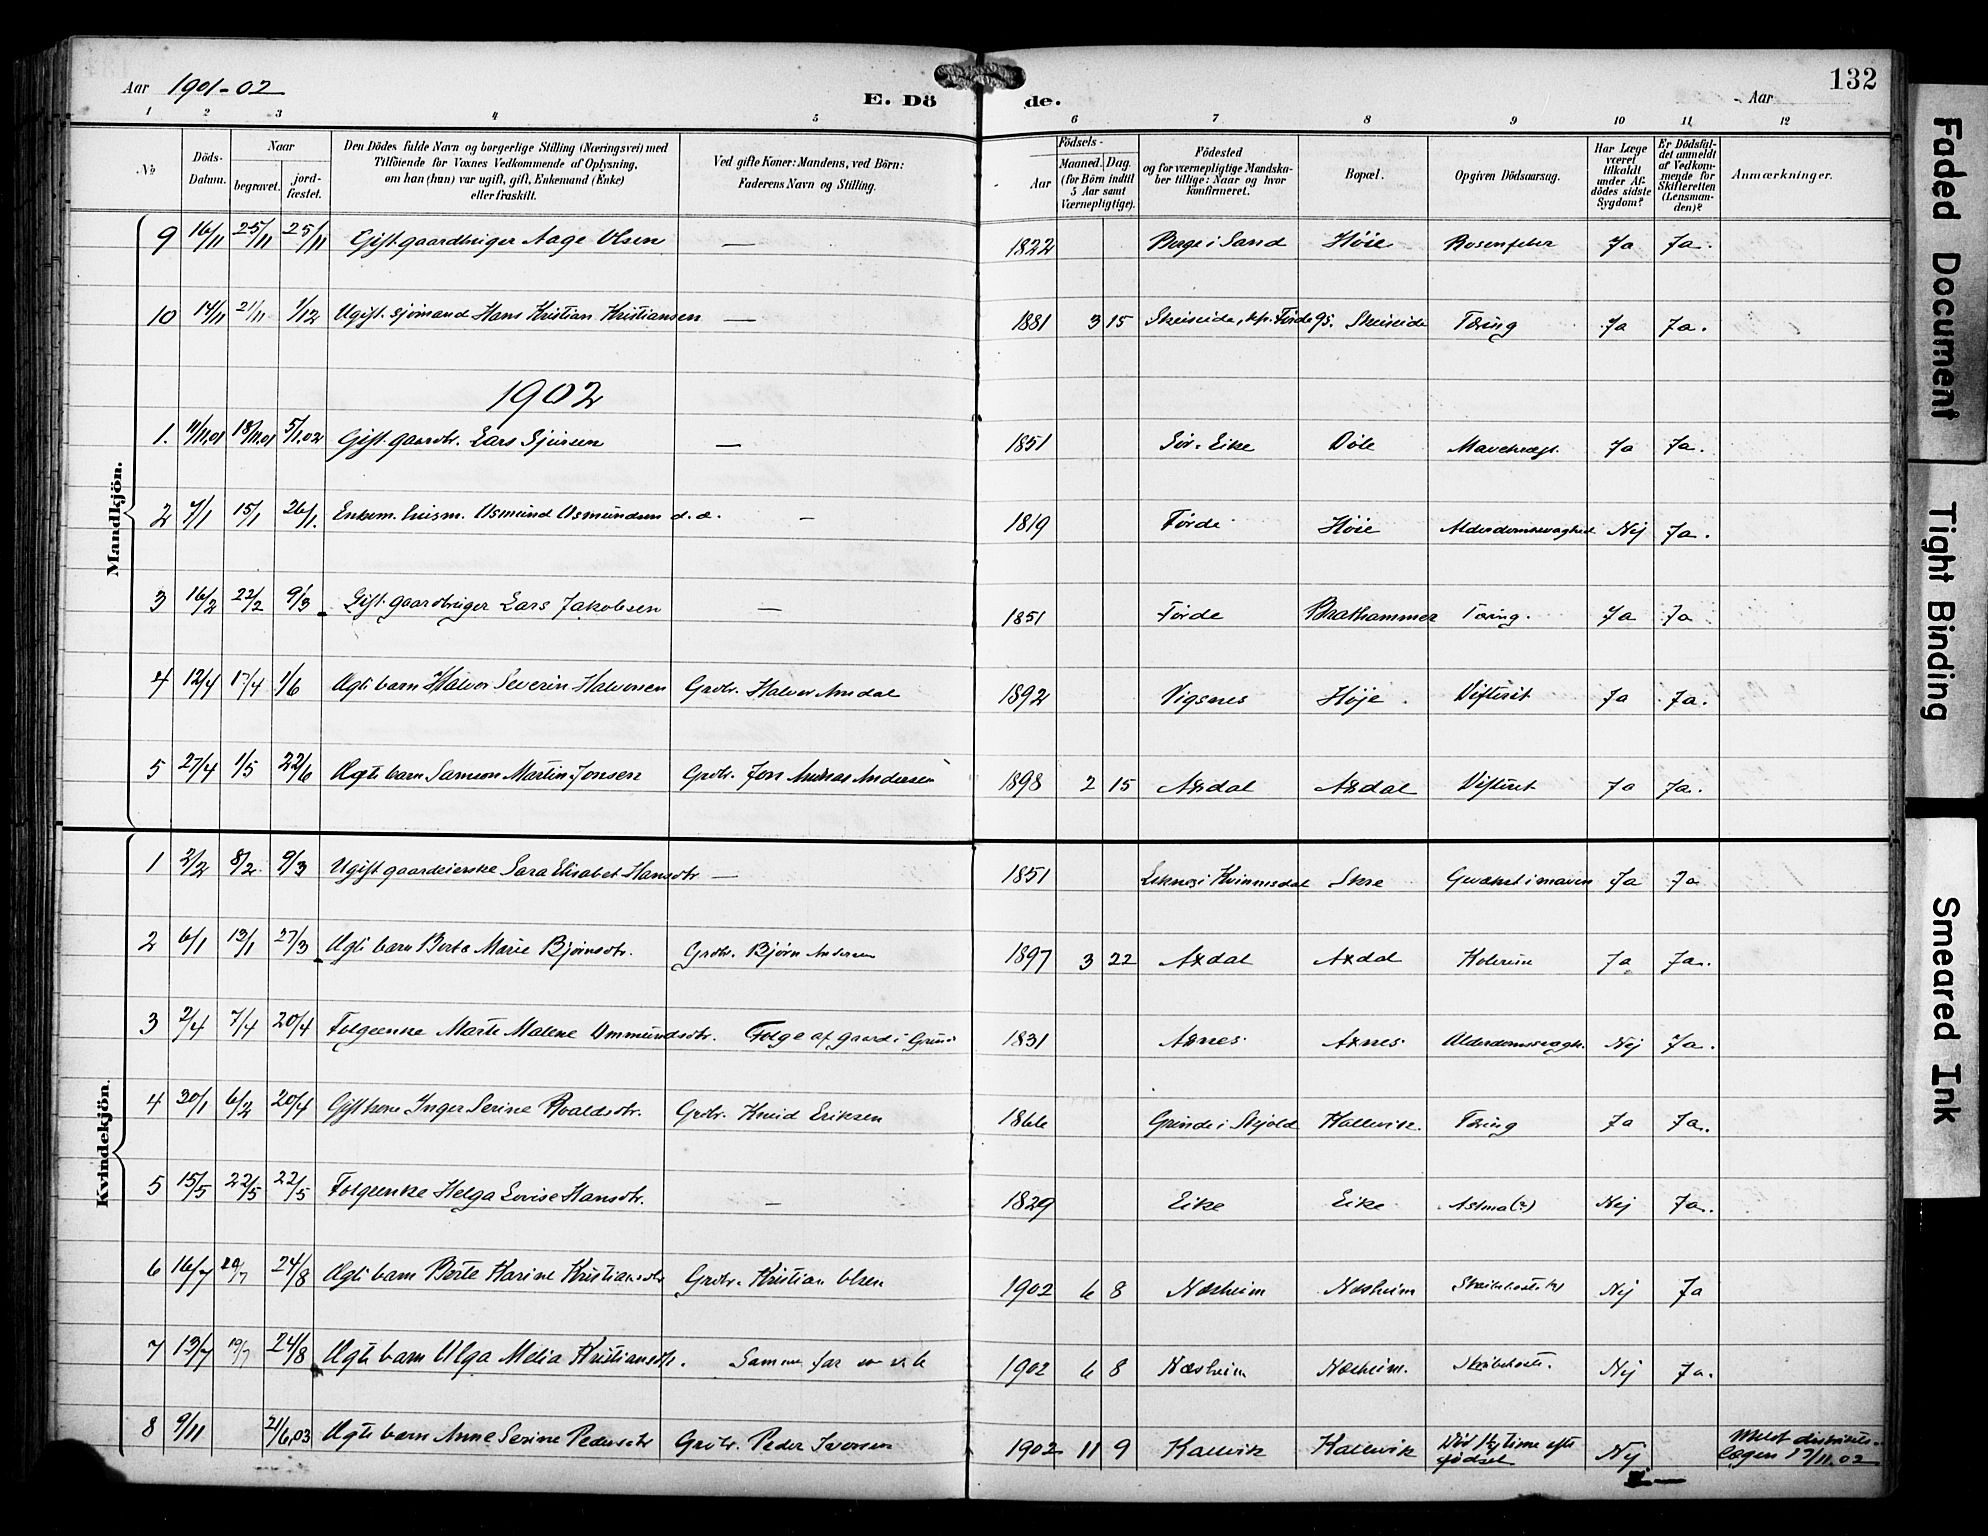 Aar 1901-02
E. Dö de.
Aar
132
1 2 3 4 5 6 7 8 9 10 11 12
No
Döds-Datum.
Naar
begravet.
jord-fæstet.
Den Dödes fulde Navn og borgerlige Stilling (Næringsvei) med
Tilföiende for Voxnes Vedkommende af Oplysning,
om han (hun) var ugift, gift, Enkemand (Enke)
eller fraskilt.
Ved gifte Koner: Mandens, ved Börn:
Faderens Navn og Stilling.
Födsels-
Aar
Maaned. Dag.
(for Börn indtil
5 Aar samt
Værnepligtige).
Födested
og for værnepligtige Mandska-
ber tillige: Naar og hvor
konfirmeret.
Bopæl.
Opgiven Dödsaarsag.
Har Læge
været
tilkaldt
under Af-
dödes sidste
Sygdom?
Er Dödsfal-
det anmeldt
af Vedkom-
mende for
Skifteretten
(Lensman-
den)?
Anmærkninger.
Mandkjön.
9 16/11 25/11 25/11 Gift gaardbruger Aage Olsen — 1822 Berge i Sand Høie Rosenfeber Ja Ja.
10 14/11 21/11 1/12 Ugift sjømand Hans Kristian Kristiansen — 1881 3 15 Skeiseide, kfr. Førde 95. Skeiseide Tæring Ja Ja.
1902
1. 11/11.01 18/11.01 5/1.02 Gift gaardbr. Lars Sjursen — 1851 Sør-Eike Døle Ja Ja.
2 7/1 15/1 26/1. Enkem. Husm. Osmund Osmundsen d.æ. — 1819 Førde Høie Alderdomssvaghed Nej Ja.
3 16/2 22/2 9/3 Gift gaardbruger Lars Jakobsen — 1851 Førde Brathammer Tæring. Ja Ja
4 12/4 17/4 1/6 Ægte barn Halvor Severin Halvorsen Grdbr. Halvor Arndal 1892 Vigsnes Høje Difterit Ja Ja.
5 27/4 1/5 22/6 Ægte barn Samson Martin Jonsen Grdbr. Jon Andreas Andersen 1898 2 15 Axdal Axdal Difterit Ja Ja.
Kvindekjön.
1 2/2 8/2. 9/3 Ugift gaardeierske Sara Elisabet Hansdtr — 1851 Eiknes i Kvinnesdal Skre Gevækst i maven Ja Ja
2 6/1 13/1 27/3 Ægte barn Berte Marie Bjørnsdtr. Grdbr. Bjørn Andersen 1897 3 22 Axdal Axdal Kolerine Ja Ja.
3 2/4 7/4 20/4 Folgeenke Marte Malene Ommundsdtr. Folge af gaard i 1831 Axnes Axnes Alderdomssvagh. Nej Ja.
4 30/1 6/2 20/4 Gift kone Inger Serine Roaldsdtr. Grdbr. Knud Eriksen 1866 Grinde i Skjold Kallevik Tæring Ja Ja.
5 15/5 22/5 22/5 Folgeenke Helga Lovise Hansdtr. — 1829 Eike Eike Astma (?) Nej Ja.
6 16/7 20/7 24/8 Ægte barn Berte Karine Kristiansdtr Grdbr. Kristian Olsen 1902 6 8 Næsheim Næsheim Strubehoste (?) Nej Ja
7 13/7 19/7 24/8 Ægte barn Olga Melia Kristiansdtr. Samme far som v. 6 1902 6 8 Næsheim Næsheim. Strubehoste. Nej Ja.
8 9/11 21/6.03 Ægte barn Anne Serine Pedersdtr Grdbr. Peder Iversen 1902 11 9 Kallevik Kallevik Død time efter fødsel Nej Meldt distrikts-
lægen 17/11.02
Faded Document
Tight Binding
Smeared Ink